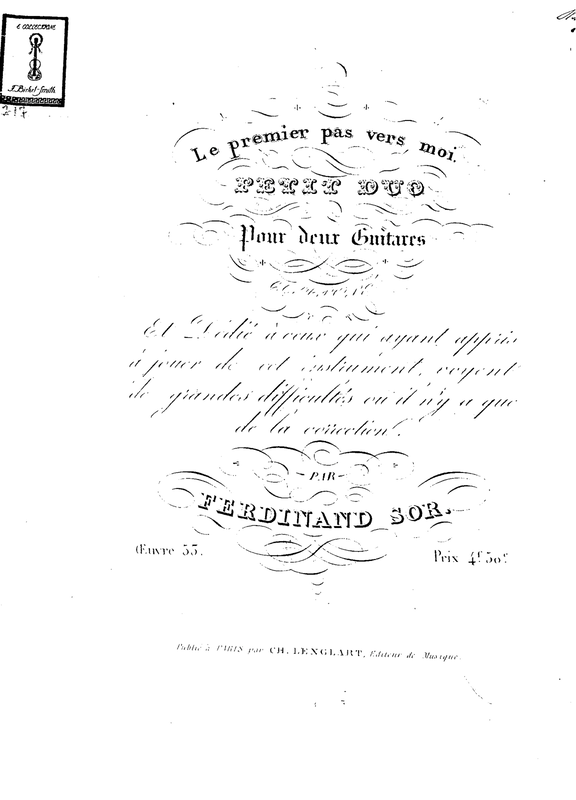 E COLLECTIONE
J. Bickel-Smith
217
Le premier pas vers moi.
PETIT DUO
Pour deux Guitares
Et Dédié à ceux qui ayant appris
à jouer de cet instrument, voyent
de grandes difficultés où il n'y a que
de la correction.
PAR
FERDINAND SOR.
Œuvre 53. Prix 4f 50c
Publié à PARIS par CH. LENGLART, Editeur de Musique.